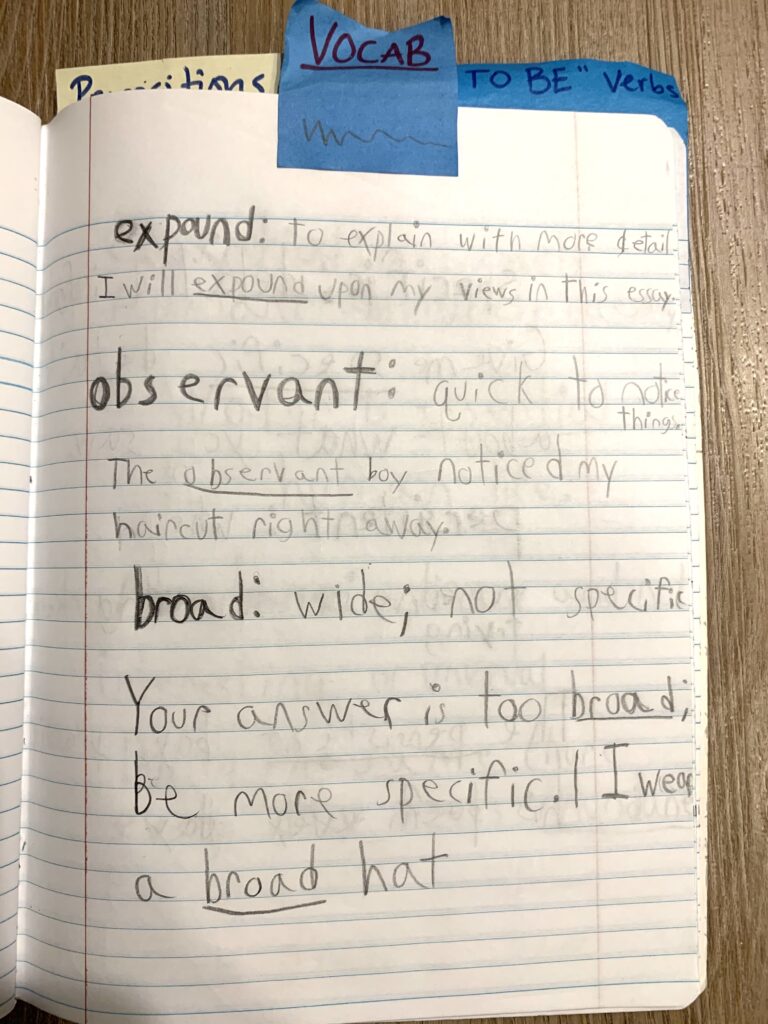 VOCAB
TO BE" Verbs
expound: to explain with more detail.
I will expound upon my views in this essay.
observant: quick to notice
things.
The observant boy noticed my
haircut right away.
broad: wide; not specific
Your answer is too broad;
be more specific. / I wear
a broad hat